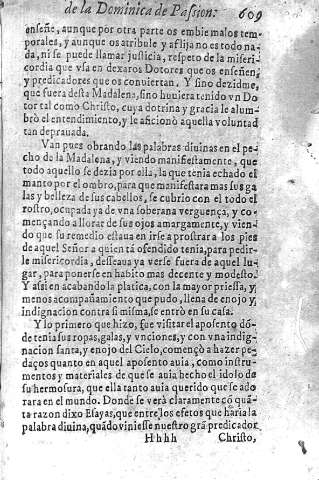 de la Dominica de Passion. 609
enseñe, aunque por otra parte os embie malos tem
porales, y aunque os atribule y aflija no es todo na-
da, ni se puede llamar justicia, respeto de la miseri-
cordia que vsa en dexaros Dotores que os enseñen,
y predicadores que os conuiertan. Y sino dezidme,
que fuera desta Madalena, sino huuiera tenido vn Do
tor tal como Christo, cuya dotrina y gracia le alum-
brò el entendimiento, y le aficionò aquella voluntad
tan deprauada.
Van pues obrando las palabras diuinas en el pe-
cho de la Madalena, y viendo manifiestamente, que
todo aquello se dezia por ella, la que tenia echado el
manto por el ombro, para que manifestara mas sus ga
las y belleza de sus cabellos, se cubrio con el todo el
rostro, ocupada ya de vna soberana verguença, y co-
mençando a llorar de sus ojos amargamente, y vien-
do que su remedio estaua en irse a prostrar a los pies
de aquel Señor a quien tã ofendido tenia, para pedir-
le misericordia, desseaua ya verse fuera de aquel lu-
gar, para ponerse en habito mas decente y modesto.
Y assi en acabando la platica, con la mayor priessa, y
menos acompañamiento que pudo, llena de enojo y
indignacion contra si misma, se entrò en su casa.
Y lo primero que hizo, fue visitar el aposento dõ-
de tenia sus ropas, galas, y vnciones, y con vna indig
nacion santa, y enojo del Cielo, començò a hazer pe-
daços quanto en aquel aposento auia, como instru-
mentos y materiales de que se auia hecho el idolo de
su hermosura, que ella tanto auia querido que se ado
rara en el mundo. Donde se verà claramente cõ quã
ta razon dixo Esayas, que entre los efetos que haria la
palabra diuina, quãdo viniesse nuestro grã predicador
Hhhh Christo,